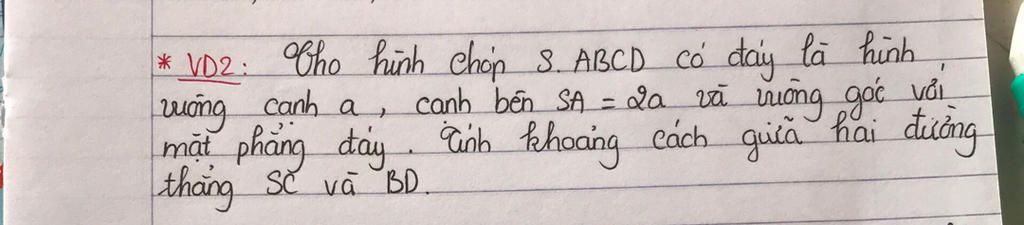 * VD2: Cho hình chóp S.ABCD có đáy là hình
vuông cạnh a, cạnh bên SA = 2a và vuông góc với
mặt phẳng đáy. Tính khoảng cách giữa hai đường
thẳng SC và BD.